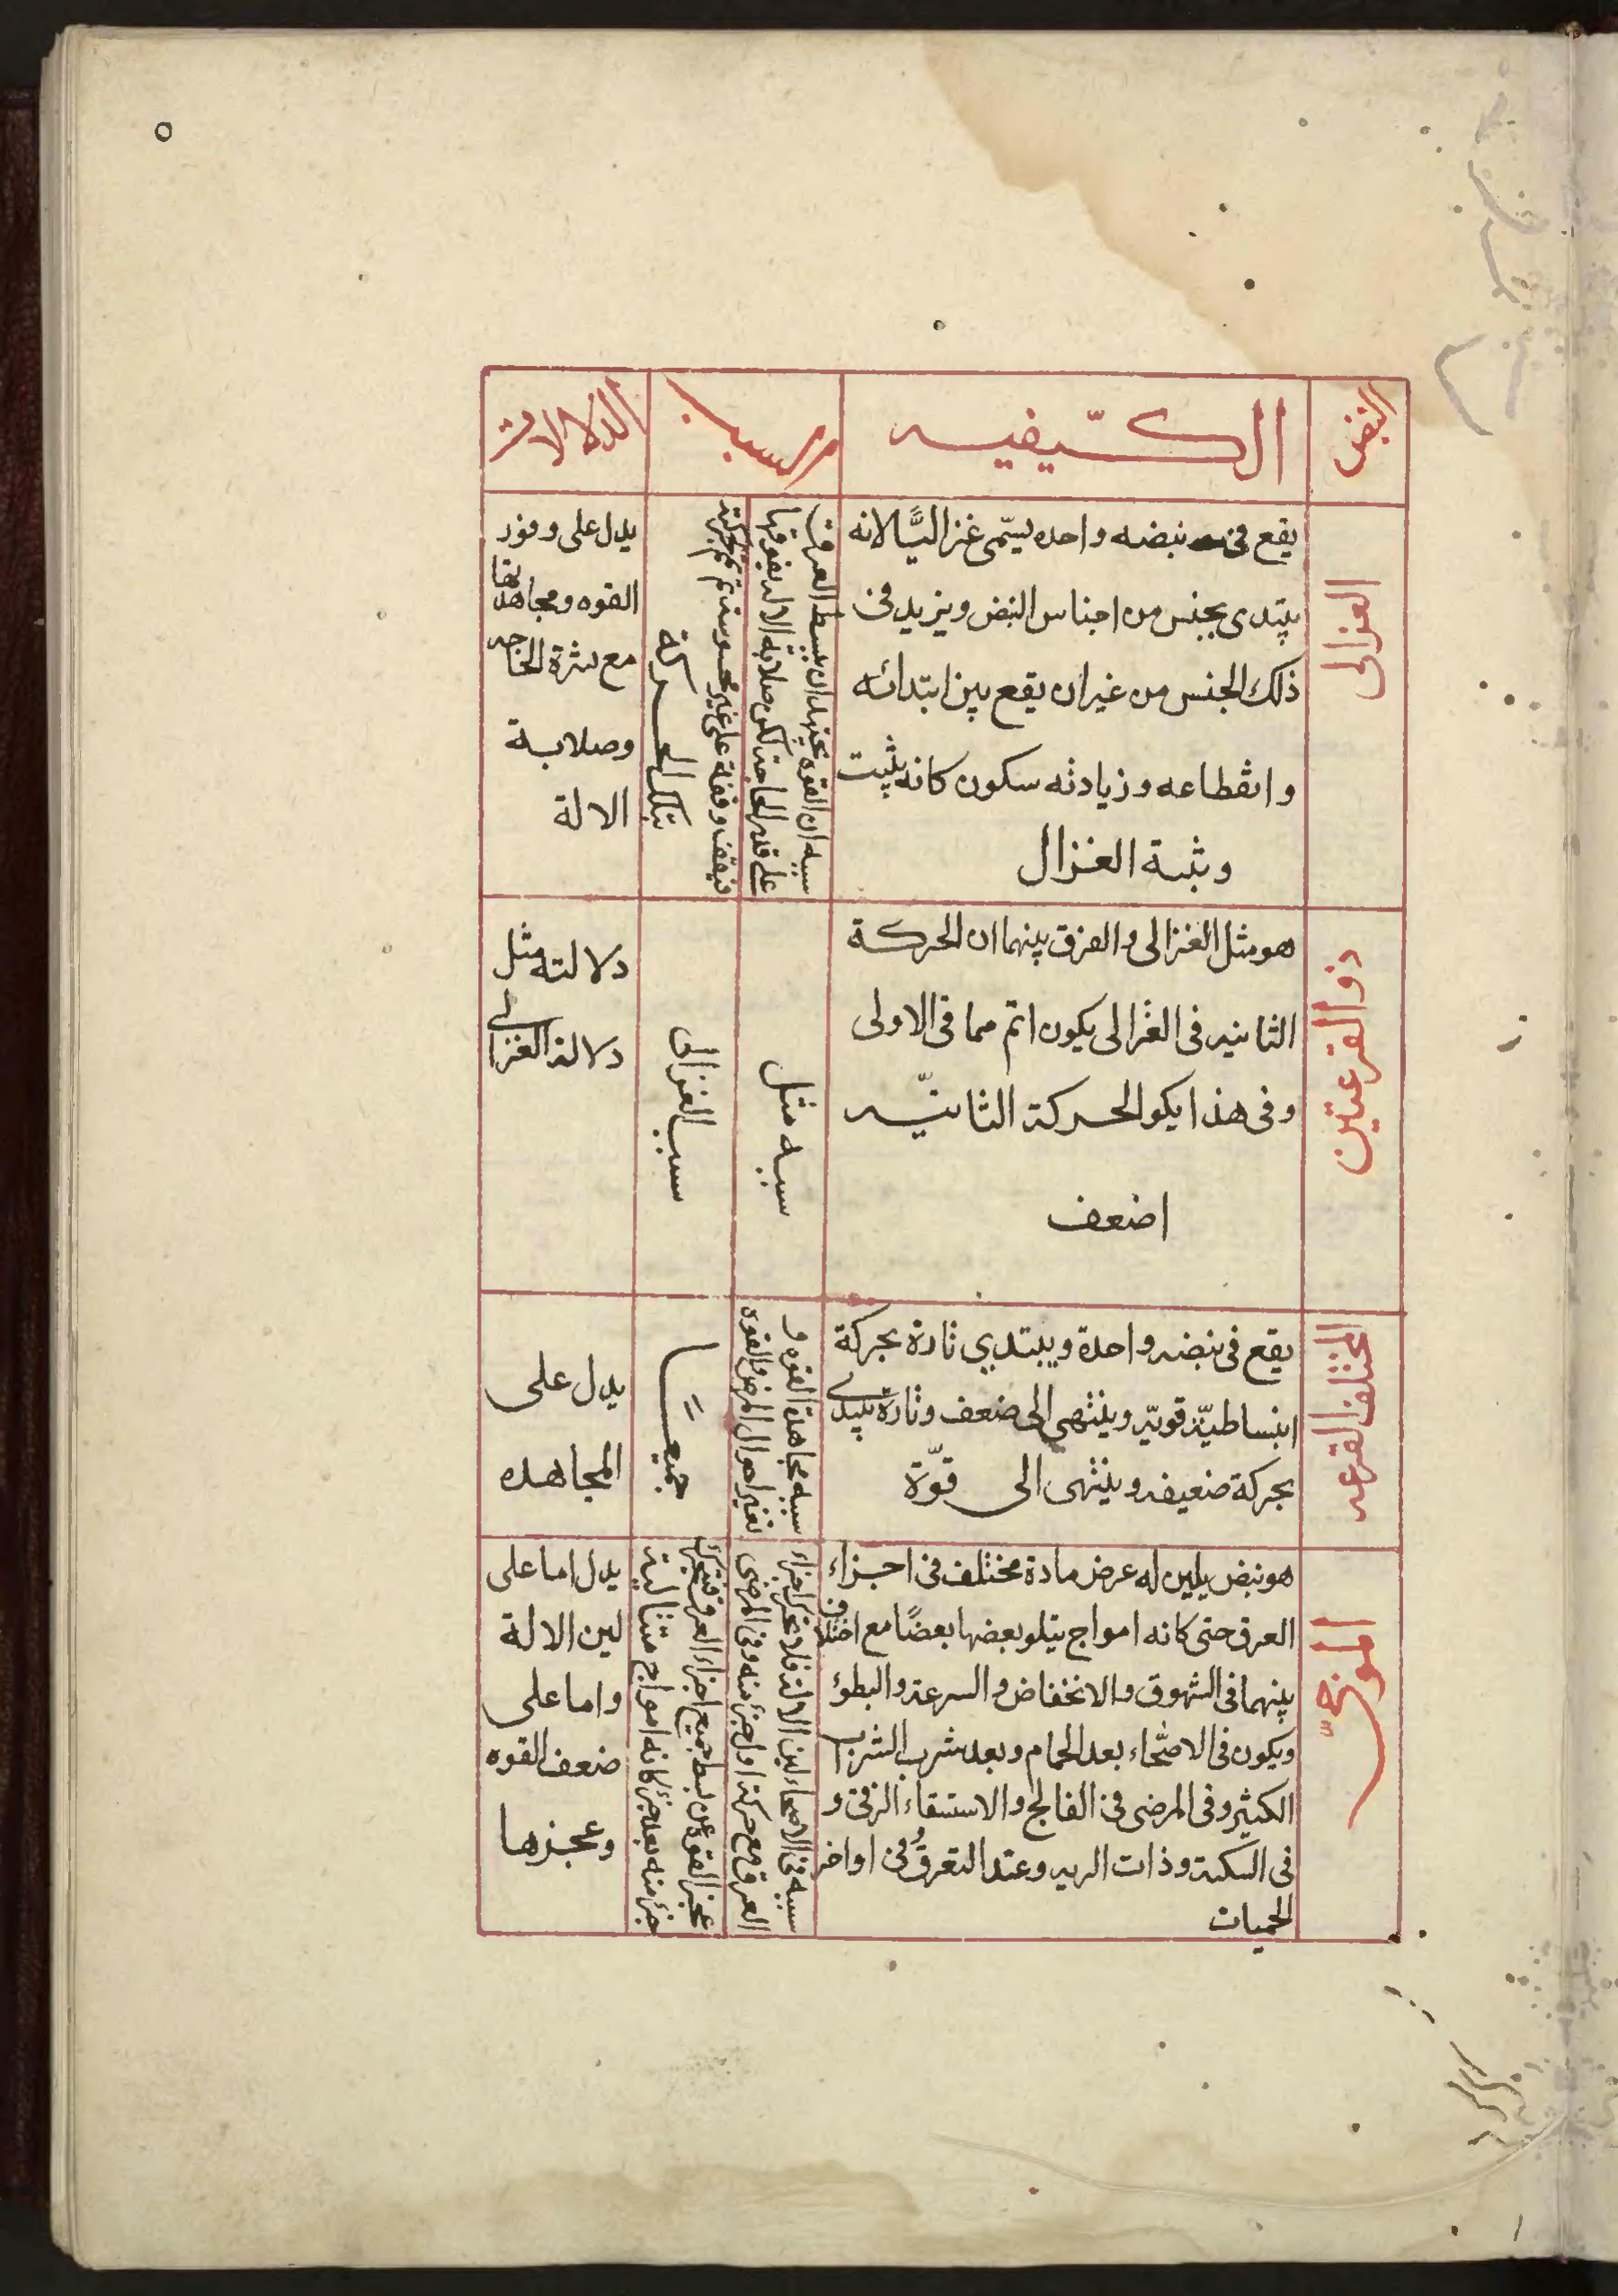 ٥
النبض
الكيفيه
السبب
الدلالات
الغزالى
يقع فى نبضه واحده يسمى غزاليًّا لانه
يبتدى بجنس من اجناس النبض ويزيد فى
ذلك الجنس من غيران يقع بين ابتدائه
وانقطاعه وزيادته سكون كانه يثبت
وثبة الغزال
سببه ان القوه تجتهد ان تبسط العرق
على قدر الحاجة لكن صلابة الالة
فيقف وقفة على غير محسوسة ثم
تلك الحركة
يدل على وفور
القوه ومجاهدتها
مع شرة الحاجه
وصلابة
الالة
ذو القرعتين
هو مثل الغزالى والفرق بينهما ان الحركة
الثانيه فى الغزالى يكون اتم مما فى الاولى
وفى هذا يكو الحركة الثانيّه
اضعف
سببه مثل
سبب الغزالى
دلالته مثل
دلالة الغزالى
المختلف القرعه
يقع فى نبضه واحدة ويبتدي تارة بحركة
انبساطيّة قويّه وينتهى الى ضعف وتارة يبتدى
بحركة ضعيفه وينتهى الى قوّة
سببه مجاهدة القوه و
تغير احوال المرض والقوه
جميعا
يدل على
المجاهده
الموجىّ
هو نبض يلين له عرض مادة مختلف فى اجزاء
العرق حتى كانه امواج يتلو بعضها بعضًا مع اختلاف
بينهما فى الشهوق والانخفاض والسرعة والبطؤ
ويكون فى الاصحّاء بعد الحمام وبعد شرب الشراب
الكثير وفى المرضى فى الفالج والاستسقاء الزقى و
فى السكتة وذات الريه وعند التعرق فى اواخر
الحميات
سببه فى الاصحاء لين الالة فلا تتحرك اجزاء
العرق مع حركة اول جزء منه وفى المرضى
عجز القوه عن بسط جميع اجزاء العرق فتتحرك
جزء منه بعد جزء كانه امواج متتالية
يدل اما على
لين الالة
واما على
ضعف القوه
وعجزها